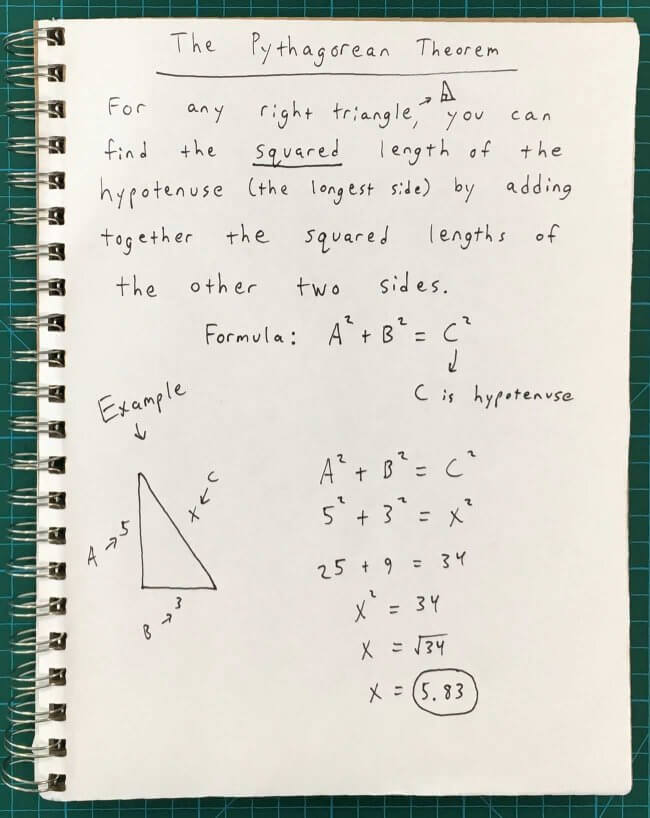 The Pythagorean Theorem
For any right triangle, → you can
find the squared length of the
hypotenuse (the longest side) by adding
together the squared lengths of
the other two sides.
Formula: A² + B² = C²
↓
C is hypotenuse
Example
↓
C
↙
X
5
A →
3
B →
A² + B² = C²
5² + 3² = X²
25 + 9 = 34
X² = 34
X = √34
X = 5.83